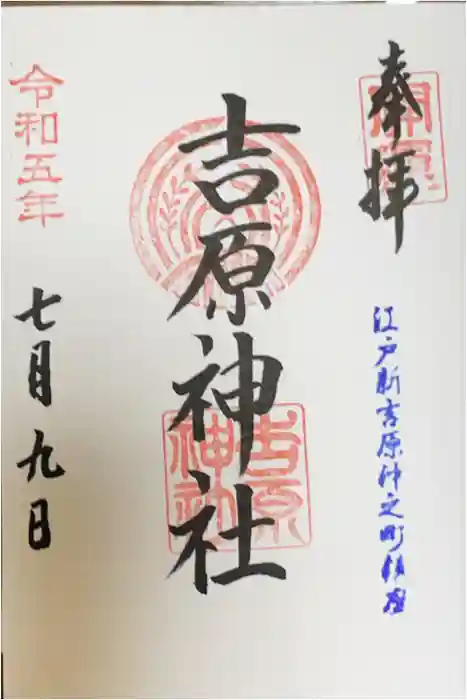 奉拝
開運
江戸新吉原仲之町鎮座
吉原神社
吉原
神社
令和五年
七月九日